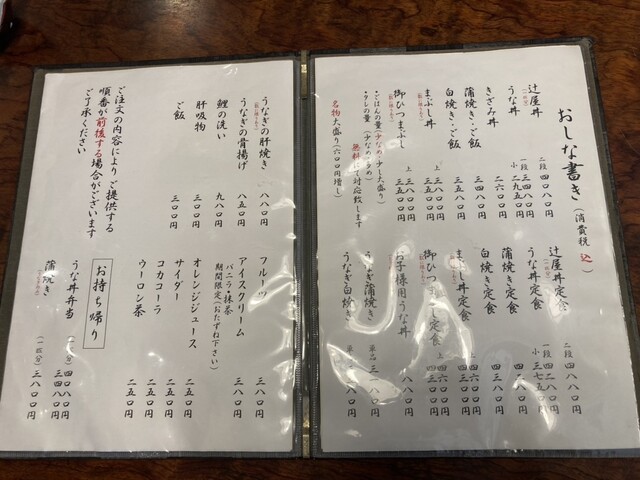 おしな書き（消費税込）
辻屋丼 二段 四〇八〇円
うな丼 一段 三四八〇円
小 二九五〇円
きざみ丼 二六〇〇円
蒲焼き・ご飯 三四八〇円
白焼き・ご飯 三五八〇円
まぶし丼
御ひつまぶし
・ごはんの量（少なめ・少し大盛り）
・タレの量（少なめ・多め）
無料にて対応致します
名物大盛り（六〇〇円増し）
辻屋丼定食 二段 四八八〇円
うな丼定食 一段 四二八〇円
小 三七五〇円
蒲焼き定食 四二八〇円
白焼き定食
まぶし丼定食
御ひつまぶし定食
お子様用うな丼
うなぎ蒲焼き 単品
うなぎ白焼き 単品
うなぎの肝焼き 八八〇円
うなぎの骨揚げ 八五〇円
鯉の洗い 九八〇円
肝吸物 三〇〇円
ご飯 三〇〇円
ご注文の内容により、ご提供する
順番が前後する場合がございます
ご了承ください
フルーツ 三八〇円
アイスクリーム 三八〇円
バニラ・抹茶
期間限定（おたずね下さい）
オレンジジュース 二五〇円
サイダー 二五〇円
コカコーラ 二五〇円
ウーロン茶 二五〇円
お持ち帰り
うな丼弁当 （二段） 四〇八〇円
（一段） 三四八〇円
蒲焼き （一匹分） 三一八〇円